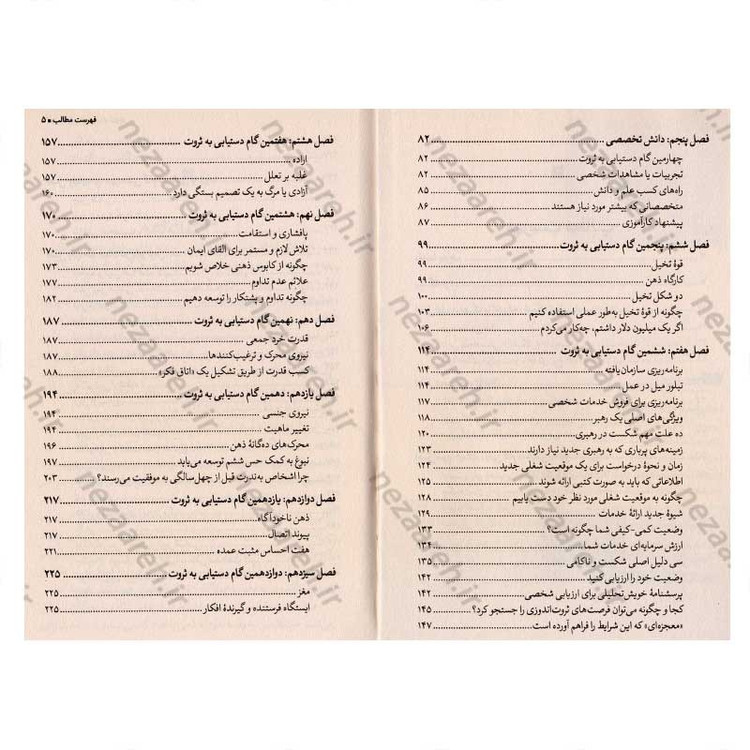 فصل پنجم: دانش تخصصی ............ ۸۲
چهارمین گام دستیابی به ثروت ............ ۸۲
تجربیات یا مشاهدات شخصی ............ ۸۲
راه‌های کسب علم و دانش ............ ۸۵
متخصصانی که بیشتر مورد نیاز هستند ............ ۸۶
پیشنهاد کارآموزی ............ ۸۷
فصل ششم: پنجمین گام دستیابی به ثروت ............ ۹۹
قوهٔ تخیل ............ ۹۹
کارگاه ذهن ............ ۹۹
دو شکل تخیل ............ ۱۰۰
چگونه از قوهٔ تخیل به‌طور عملی استفاده کنیم ............ ۱۰۳
اگر یک میلیون دلار داشتم، چه‌کار می‌کردم ............ ۱۰۶
فصل هفتم: ششمین گام دستیابی به ثروت ............ ۱۱۴
برنامه‌ریزی سازمان‌یافته ............ ۱۱۴
تبلور میل در عمل ............ ۱۱۴
برنامه‌ریزی برای فروش خدمات شخصی ............ ۱۱۷
ویژگی‌های اصلی یک رهبر ............ ۱۱۸
ده علت مهم شکست در رهبری ............ ۱۲۰
زمینه‌های پرباری که به رهبری جدید نیاز دارند ............ ۱۲۳
زمان و نحوهٔ درخواست برای یک موقعیت شغلی جدید ............ ۱۲۴
اطلاعاتی که باید به صورت کتبی ارائه شوند ............ ۱۲۵
چگونه به موقعیت شغلی مورد نظر خود دست یابیم ............ ۱۲۸
شیوهٔ جدید ارائهٔ خدمات ............ ۱۲۹
وضعیت کمی-کیفی شما چگونه است؟ ............ ۱۳۳
ارزش سرمایه‌ای خدمات شما ............ ۱۳۴
سی دلیل اصلی شکست و ناکامی ............ ۱۳۵
وضعیت خود را ارزیابی کنید ............ ۱۴۲
پرسشنامهٔ خویش‌تحلیلی برای ارزیابی شخصی ............ ۱۴۲
کجا و چگونه می‌توان فرصت‌های ثروت‌اندوزی را جستجو کرد؟ ............ ۱۴۵
«معجزه‌ای» که این شرایط را فراهم آورده است ............ ۱۴۷
فهرست مطالب ■ ۵
فصل هشتم: هفتمین گام دستیابی به ثروت ............ ۱۵۷
اراده ............ ۱۵۷
غلبه بر تعلل ............ ۱۵۷
آزادی یا مرگ به یک تصمیم بستگی دارد ............ ۱۶۰
فصل نهم: هشتمین گام دستیابی به ثروت ............ ۱۷۰
پافشاری و استقامت ............ ۱۷۰
تلاش لازم و مستمر برای القای ایمان ............ ۱۷۰
چگونه از کابوس ذهنی خلاص شویم ............ ۱۷۳
علائم عدم تداوم ............ ۱۷۷
چگونه تداوم و پشتکار را توسعه دهیم ............ ۱۸۲
فصل دهم: نهمین گام دستیابی به ثروت ............ ۱۸۷
قدرت خرد جمعی ............ ۱۸۷
نیروی محرک و ترغیب‌کنندها ............ ۱۸۷
کسب قدرت از طریق تشکیل یک «اتاق فکر» ............ ۱۸۷
فصل یازدهم: دهمین گام دستیابی به ثروت ............ ۱۹۴
نیروی جنسی ............ ۱۹۴
تغییر ماهیت ............ ۱۹۴
محرک‌های ده‌گانهٔ ذهن ............ ۱۹۶
نبوغ به کمک حس ششم توسعه می‌یابد ............ ۱۹۷
چرا اشخاص به‌ندرت قبل از چهل‌سالگی به موفقیت می‌رسند؟ ............ ۲۰۳
فصل دوازدهم: یازدهمین گام دستیابی به ثروت ............ ۲۱۷
ذهن ناخودآگاه ............ ۲۱۷
پیوند اتصال ............ ۲۱۷
هفت احساس مثبت عمده ............ ۲۲۱
فصل سیزدهم: دوازدهمین گام دستیابی به ثروت ............ ۲۲۵
مغز ............ ۲۲۵
ایستگاه فرستنده و گیرندهٔ افکار ............ ۲۲۵
nezaareh.ir